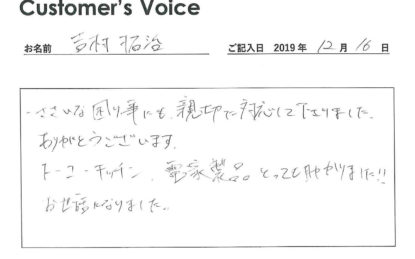 Customer's Voice
お名前 吉村 拓治 ご記入日 2019 年 12 月 16 日
・ささいな困り事にも、親切に対応して下さりました。
ありがとうございます。
トーコーキッチン、電家製品。とっても助かりました!!
お世話になりました。